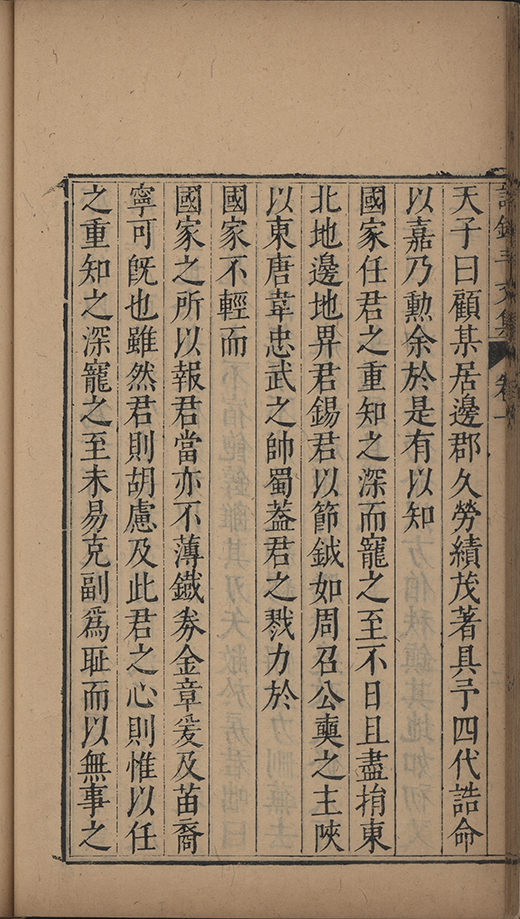 天子曰顧某居邊郡久勞績茂著具予四代誥命
以嘉乃勲余於是有以知
國家任君之重知之深而寵之至不日且盡捐東
北地邊地畀君錫君以節鉞如周召公奭之主陜
以東唐韋忠武之帥蜀葢君之戮力於
國家不輕而
國家之所以報君當亦不薄鐵券金章爰及苗裔
寧可旣也雖然君則胡慮及此君之心則惟以任
之重知之深寵之至未易克副爲耻而以無事之
文集
卷一